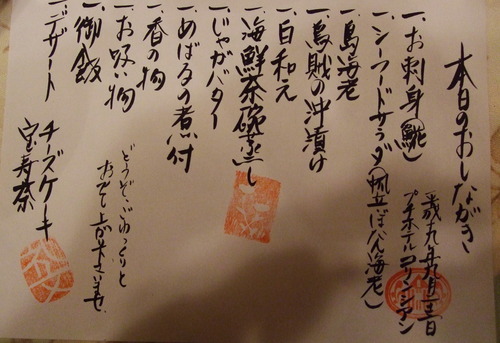 本日のおしながき
平成十九年九月二三日
プチホテルコリンシアン
一、お刺身(鮑)
一、シーフードサラダ(帆立、ぼたん海老)
一、鳥海老
一、烏賊の沖漬け
一、白和え
一、海鮮茶碗蒸し
一、じゃがバター
一、めばるの煮付
一、香の物
一、お吸い物
一、御飯
一、デザート チーズケーキ
宝寿茶
どうぞ、ごゆっくりと
おめし上がり下さいませ